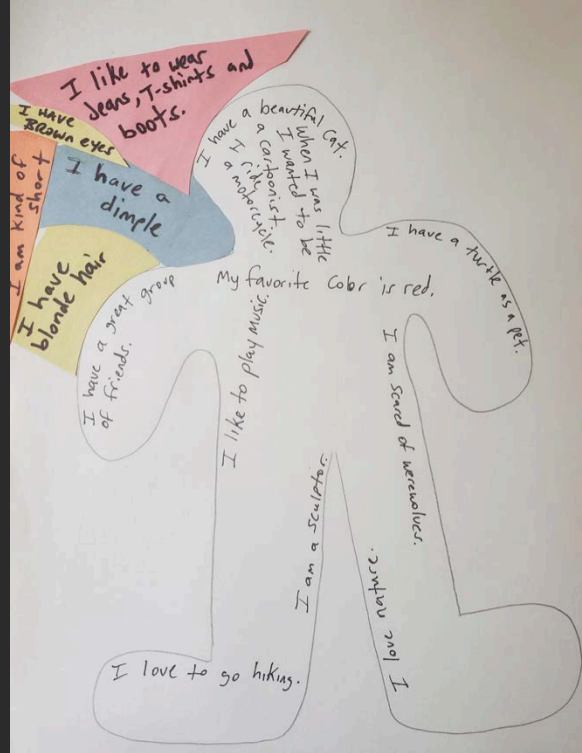 I like to wear
Jeans, T-shirts and
boots.
I HAVE
BROWN eyes
I am kind of
short
I have a
dimple
I have
blonde hair
I have a beautiful Cat.
When I was little
I wanted to be
a cartoonist.
I ride
a motorcycle.
I have a turtle as a pet.
My favorite Color is red.
I have a great group
of friends.
I like to play Music.
I am scared of werewolves.
I am a sculptor.
I love nature.
I love to go hiking.